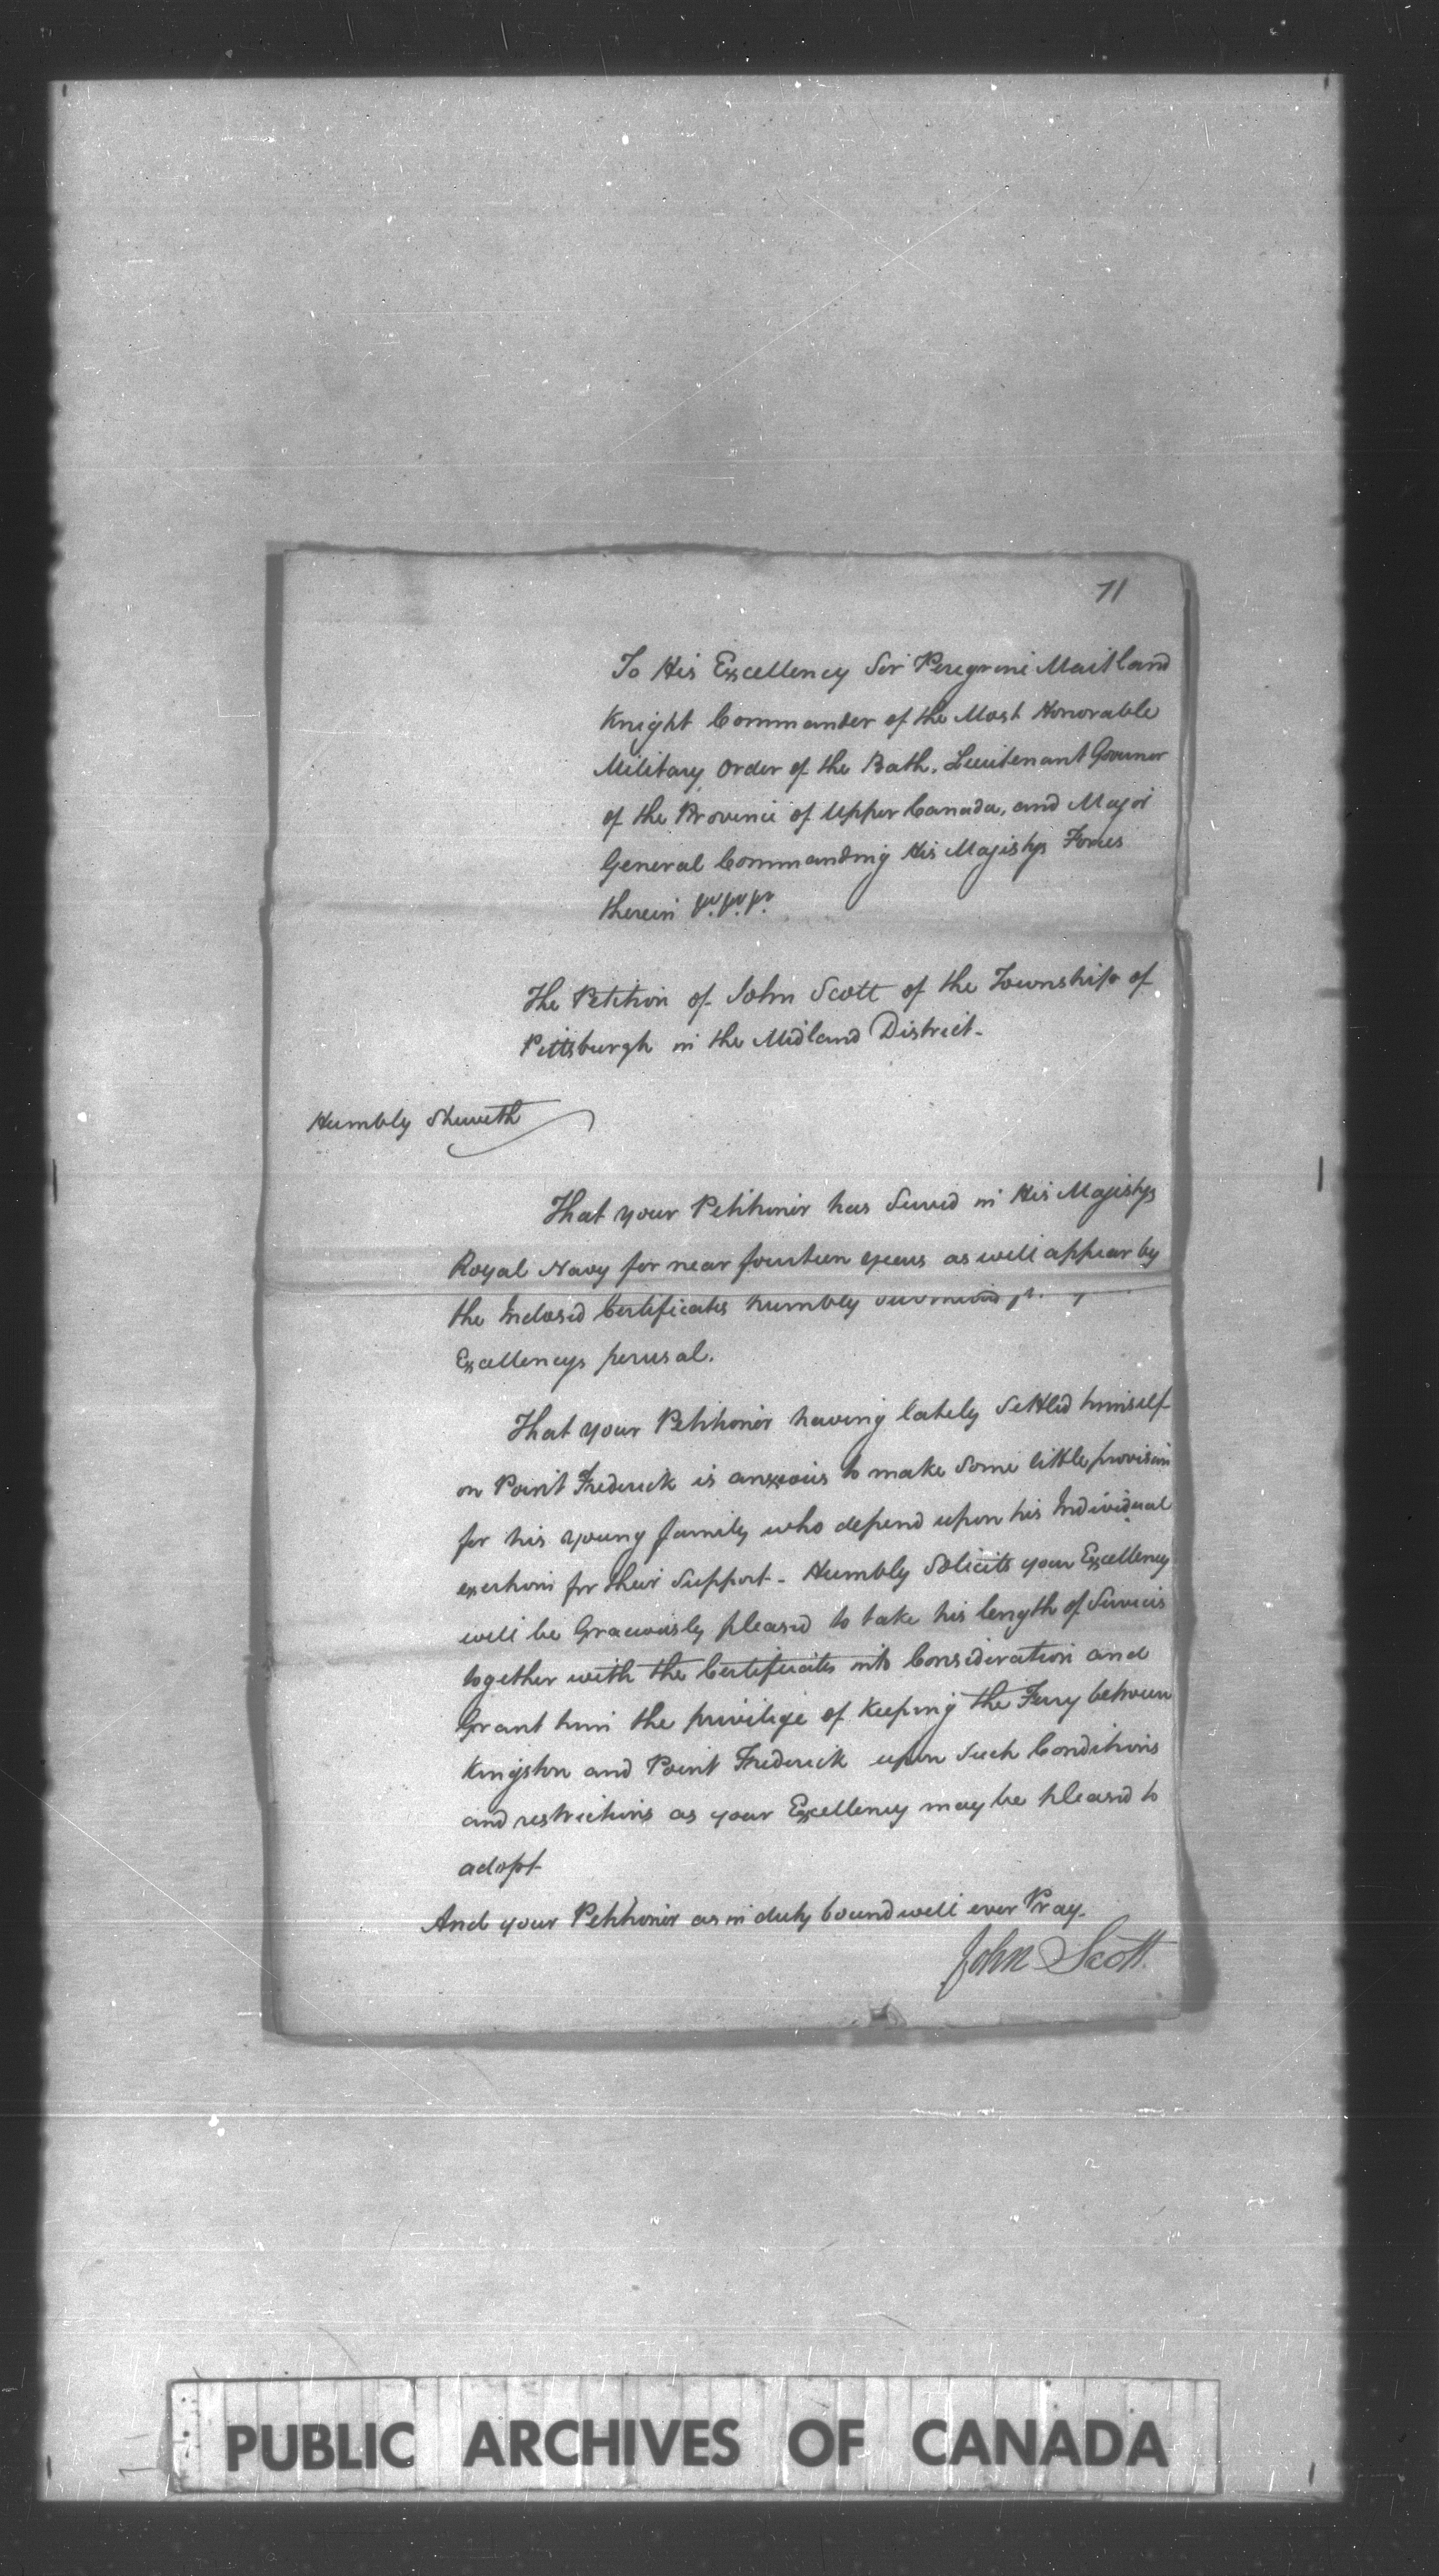 71
To His Excellency Sir Peregrine Maitland
Knight Commander of the Most Honorable
Military Order of the Bath, Lieutenant Governor
of the Province of Upper Canada, and Major
General Commanding His Majestys Forces
therein &c. &c. &c.
The Petition of John Scott of the Township of
Pittsburgh in the Midland District.
Humbly Sheweth
That your Petitioner has Served in His Majestys
Royal Navy for near fourteen years as will appear by
the Inclosed Certificates humbly
Excellencys perusal.
That your Petitioner having lately Settled himself
on Point Frederick is anxxious to make Some little provision
for his young family who depend upon his Individual
exertions for their Support - Humbly Solicits your Excellency
will be Graciously pleased to take his length of Services
together with the Certificates into Consideration and
Grant him the privilige of Keeping the Ferry between
Kingston and Point Frederick upon Such Conditions
and restrictions as your Excellency may be pleased to
adopt
And your Petitioner as in duty bound will ever Pray.
John Scott.
PUBLIC ARCHIVES OF CANADA